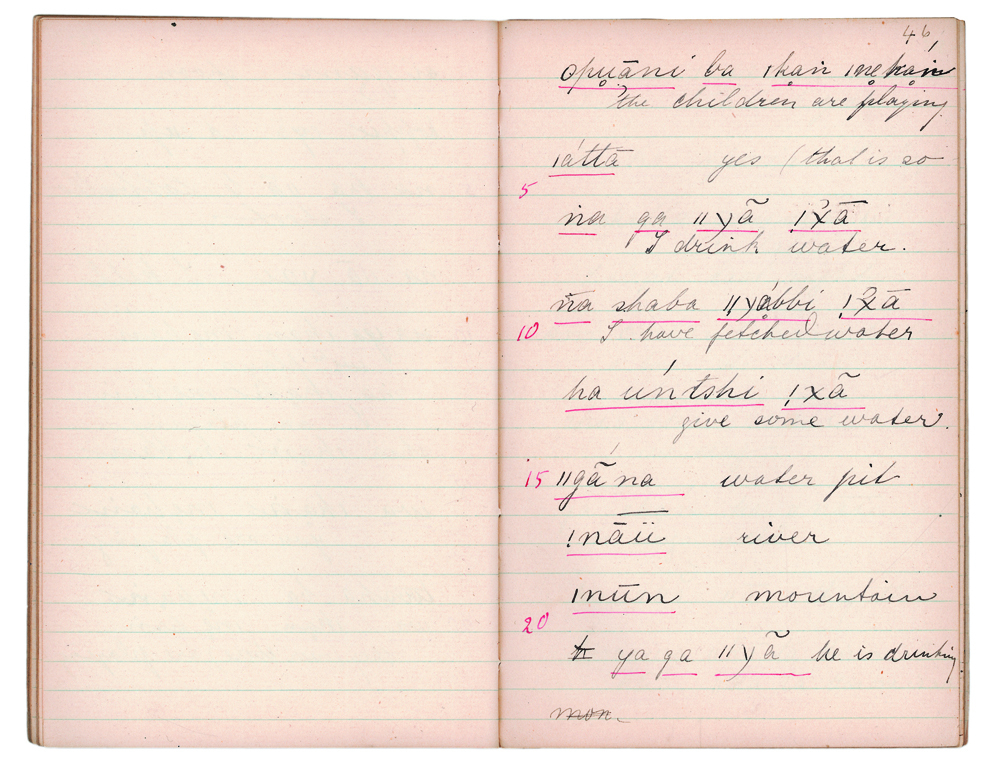 46,
opu̥ānï ba ıkan ınekain
the children are playing
ıáttā yes (that is so
5
ṅa ga ǁyã !χā
I drink water.
ṅa shaba ǁyábbi !χā
10 I have fetched water
ha úntshi !χã
give some water.
15 ǁgā̃na water pit
!nāüi river
ınūn mountain
20
ya ga ǁyã he is drinking
mon